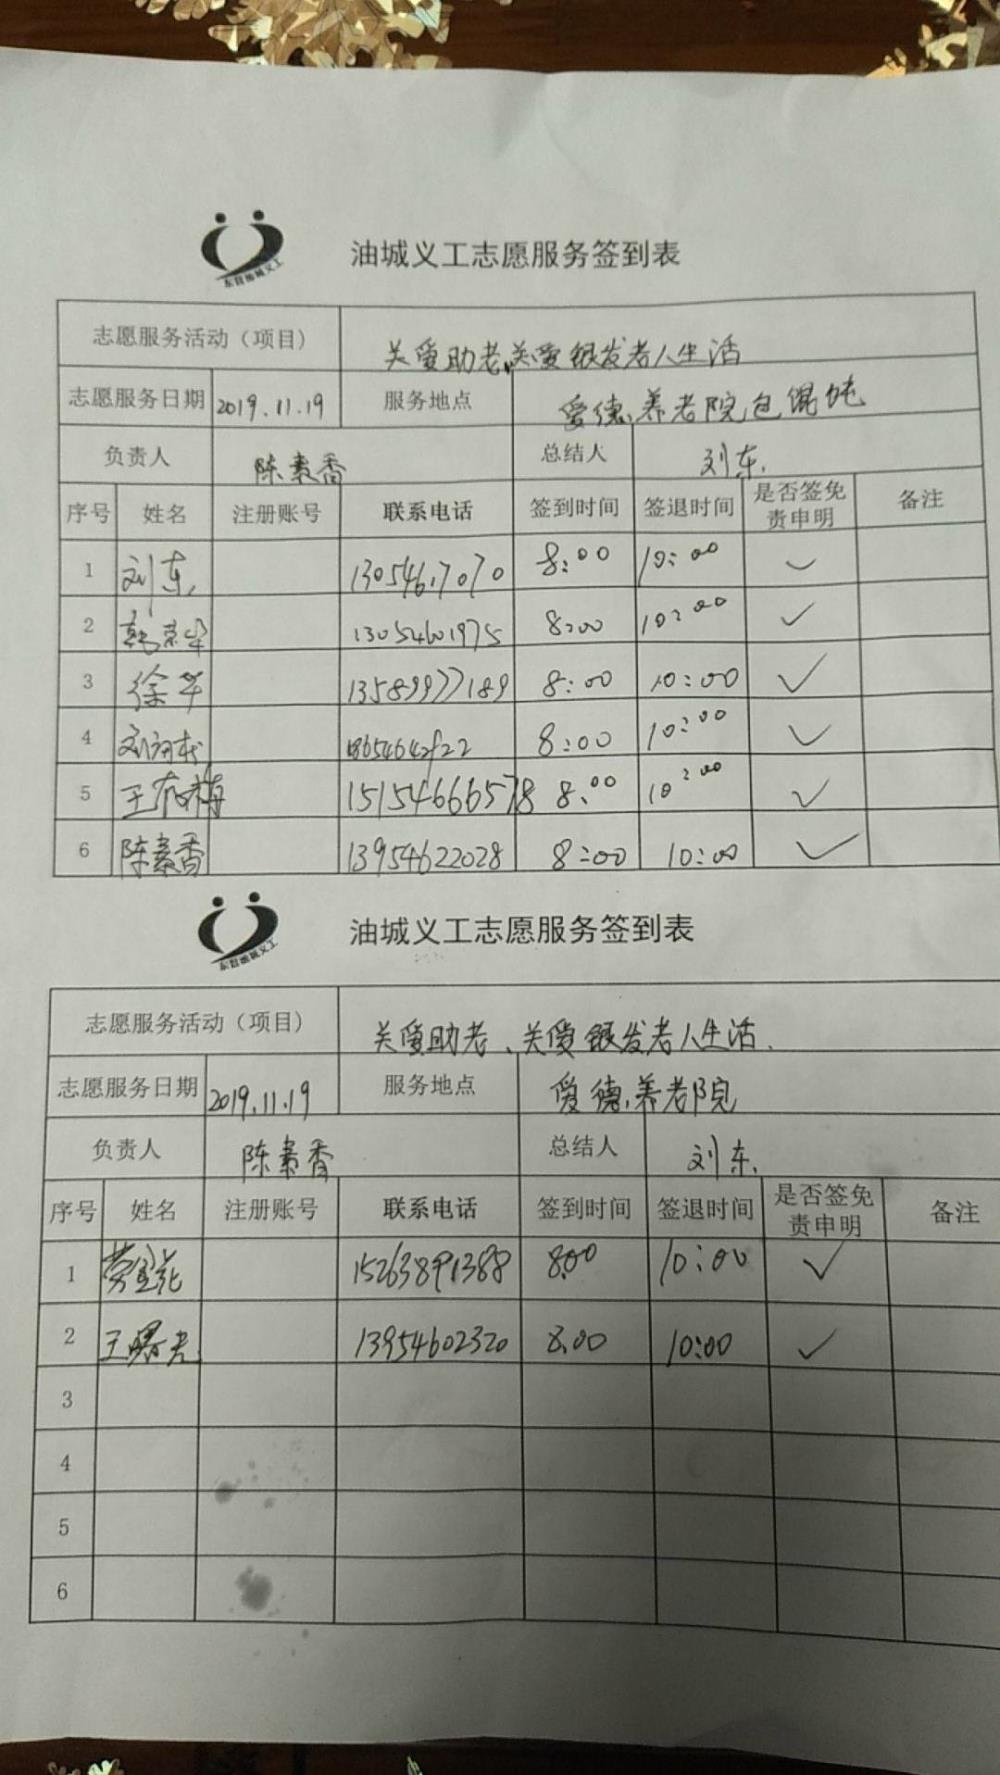 东营油城义工
油城义工志愿服务签到表
志愿服务活动（项目） 关爱助老、关爱银发老人生活
志愿服务日期 2019.11.19 服务地点 爱德养老院包馄饨
负责人 陈素香 总结人 刘东
序号 姓名 注册账号 联系电话 签到时间 签退时间 是否签免责申明 备注
1 刘东 13054617070 8:00 10:00 ✓
2 韩荣华 13054601975 8:00 10:00 ✓
3 徐华 13589977189 8:00 10:00 ✓
4 8:00 10:00 ✓
5 15154666578 8:00 10:00 ✓
6 陈素香 13954622028 8:00 10:00 ✓
东营油城义工
油城义工志愿服务签到表
志愿服务活动（项目） 关爱助老、关爱银发老人生活.
志愿服务日期 2019.11.19 服务地点 爱德养老院
负责人 陈素香 总结人 刘东
序号 姓名 注册账号 联系电话 签到时间 签退时间 是否签免责申明 备注
1 15263891388 8:00 10:00 ✓
2 王曙光 13954602320 8:00 10:00 ✓
3
4
5
6